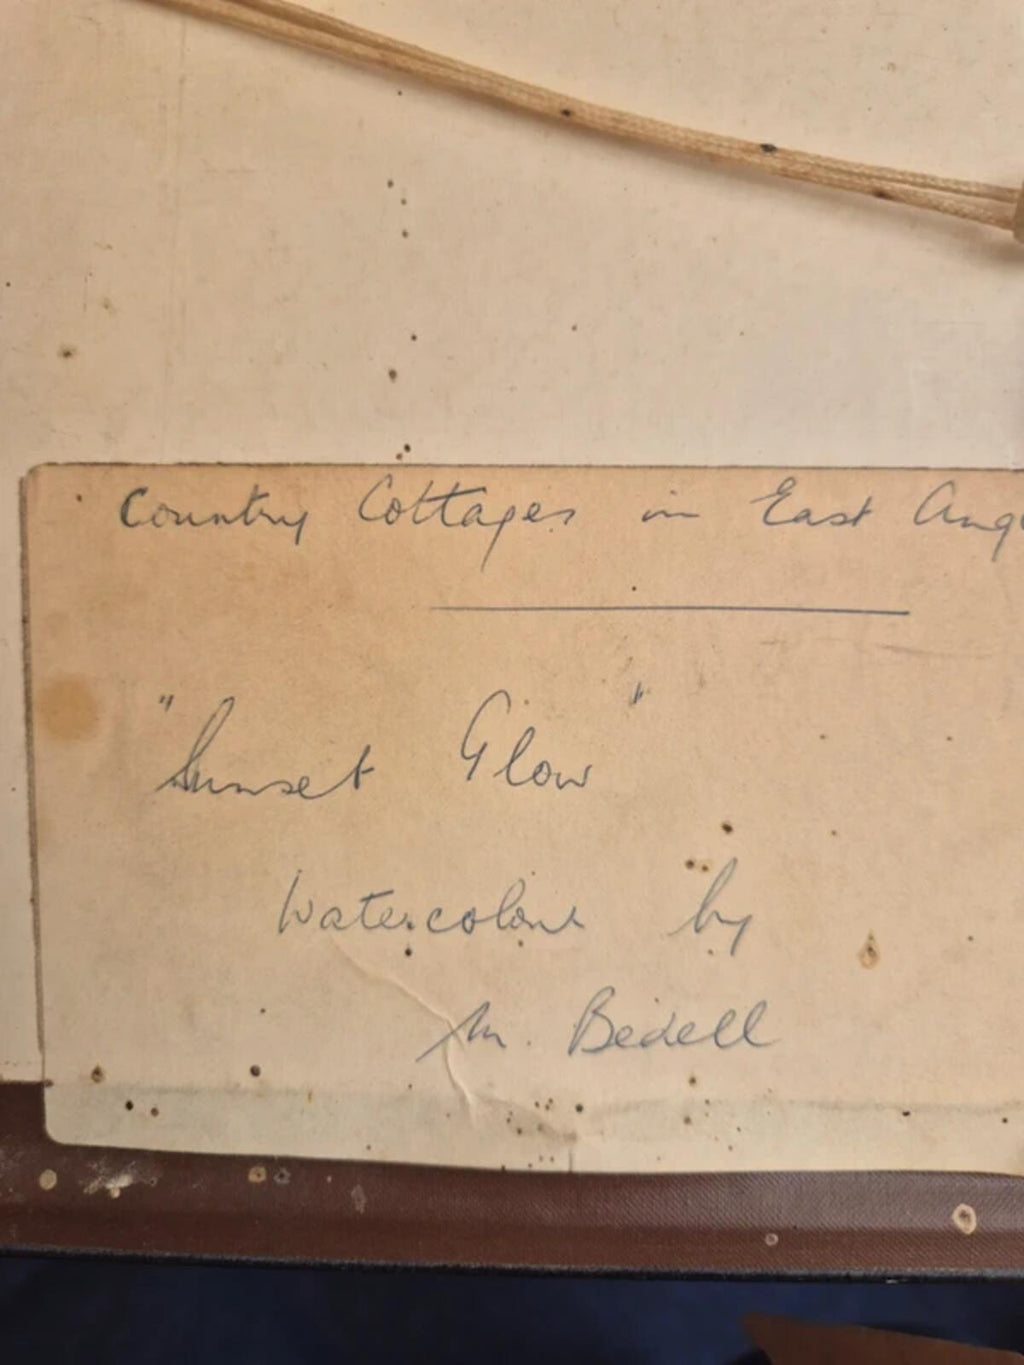 Country Cottages in East Ang
"Sunset Glow"
Watercolour by
M. Bedell